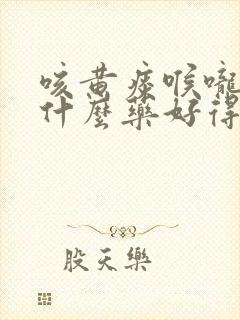 咳黄痰喉嚨
什麼藥好得
股天樂